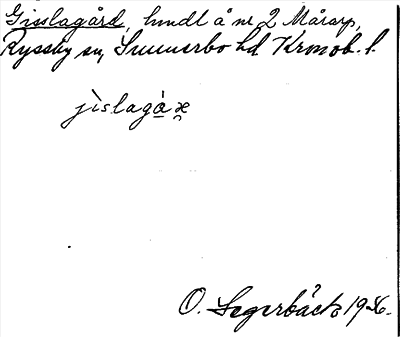 Gisslagård, hmdl å nr 2 Målarp,
Ryssby sn, Sunnerbo hd Kronob. l.
jìslagà̱ æ̭
O. Segerbäck 1936.